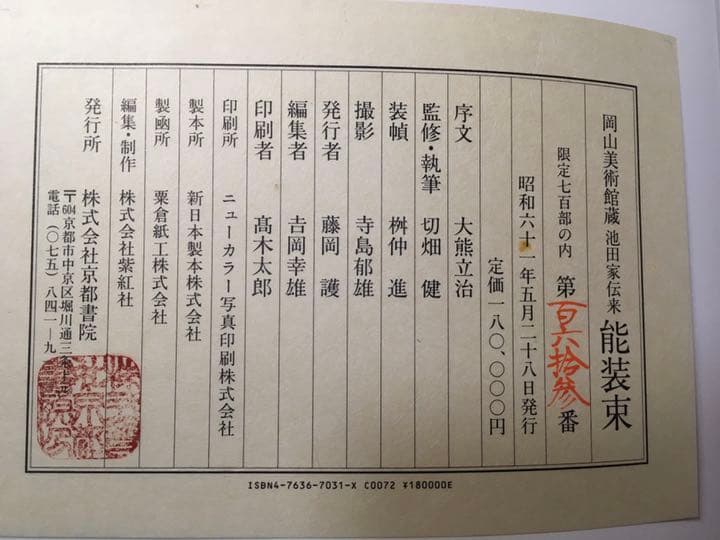 岡山美術館蔵 池田家伝来 能装束
限定七百部の内 第百六拾参番
昭和六十一年五月二十八日発行
定価一八〇、〇〇〇円
序文 大熊立治
監修・執筆 切畑 健
装幀 桝仲 進
撮影 寺島郁雄
発行者 藤岡 護
編集者 吉岡幸雄
印刷者 髙木太郎
印刷所 ニューカラー写真印刷株式会社
製本所 新日本製本株式会社
製凾所 栗倉紙工株式会社
編集・制作 株式会社紫紅社
発行所 株式会社京都書院
〒604京都市中京区堀川通三条
電話(〇七五)八四一―九
ISBN4-7636-7031-X C0072 ¥180000E